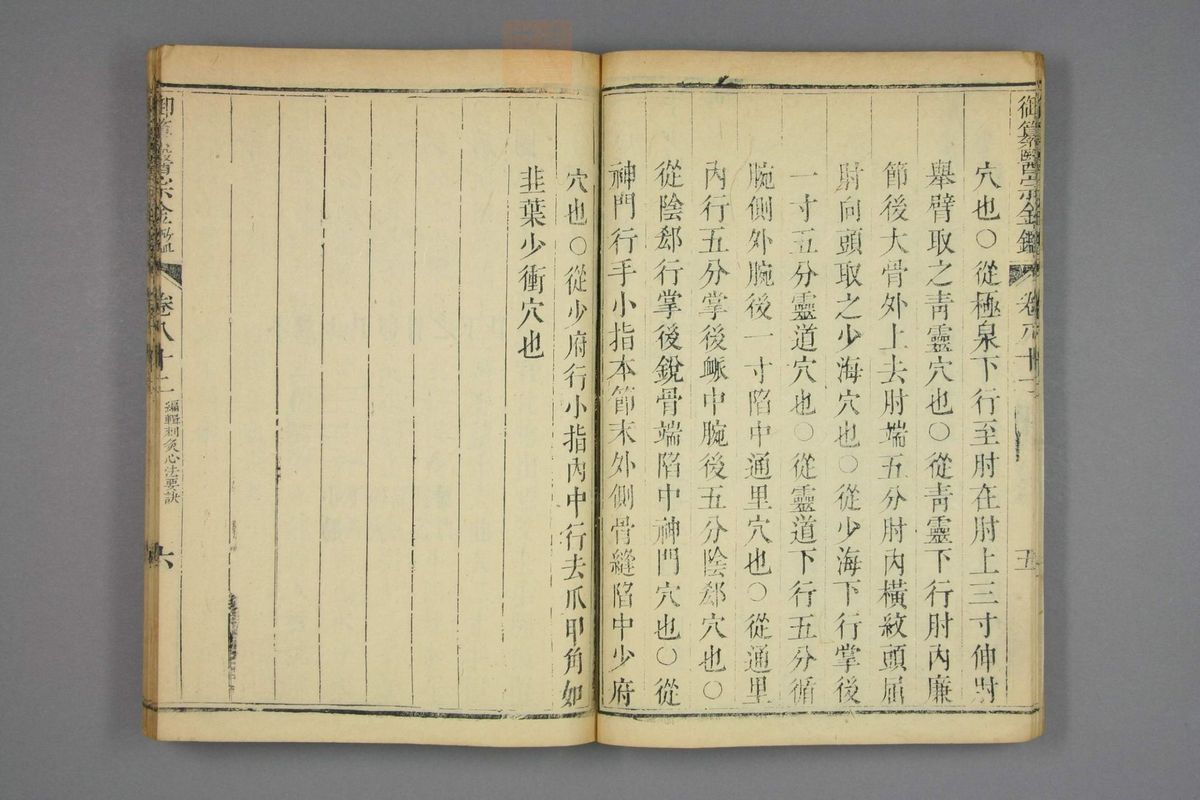 御纂醫宗金鑑
卷八十二
五
穴也〇從極泉下行至肘在肘上三寸伸肘
舉臂取之靑靈穴也〇從靑靈下行肘內廉
節後大骨外上去肘端五分肘內橫紋頭屈
肘向頭取之少海穴也〇從少海下行掌後
一寸五分靈道穴也〇從靈道下行五分循
腕側外腕後一寸陷中通里穴也〇從通里
內行五分掌後䘑中腕後五分陰郄穴也〇
從陰郄行掌後銳骨端陷中神門穴也〇從
神門行手小指本節末外側骨縫陷中少府
穴也〇從少府行小指內中行去爪甲角如
韭葉少衝穴也
御纂醫宗金鑑
卷八十二
編輯刺灸心法要訣
六